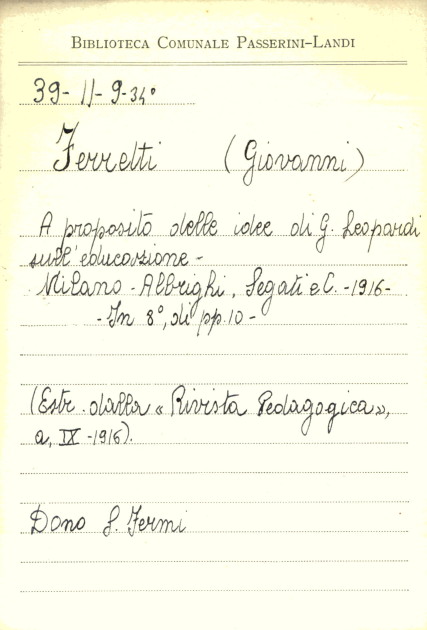 BIBLIOTECA COMUNALE PASSERINI-LANDI
39- II- 9-34°
Ferretti (Giovanni)
A proposito delle idee di G. Leopardi
sull'educazione -
Milano - Albrighi, Segati e C. - 1916 -
- In 8°, di pp. 10 -
(Estr. dalla « Rivista Pedagogica »,
a, IX - 1916).
Dono S. Fermi